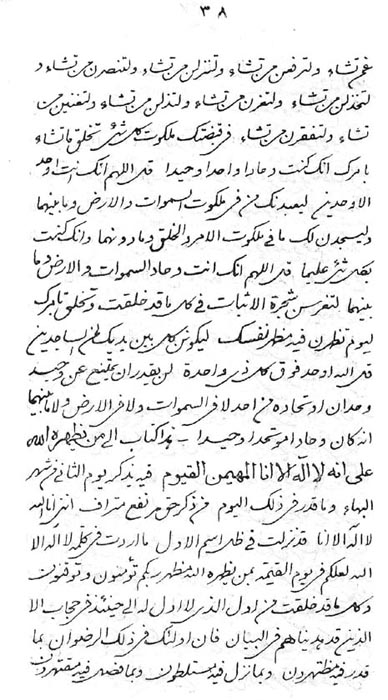 ٣٨
تشاء ولترفعن من تشاء ولتنزلن من تشاء ولتنصرن من تشاء و
لتخذلن من تشاء ولتعزن من تشاء ولتذلن من تشاء ولتغنين من
تشاء ولتفقرن من تشاء في قبضتك ملكوت كل شئ تخلق ما تشاء
بامرك انك كنت وحادا واحدا وحيدا قل اللهم انك انت اوحد
الاوحدين ليعبدنك من في ملكوت السموات والارض وما بينهما
وليسجدن لك ما في ملكوت الامر والخلق وما دونهما وانك كنت
بكل شئ عليما قل اللهم انك انت وحاد السموات والارض وما
بينهما لتغرسن شجرة الاثبات في كل ما قد خلقت وتخلق بامرك
ليوم تظهرن فيه مظهر نفسك ليكونن كل بين يديك لمن الساجدين
قل الله اوحد فوق كل ذي واحدة لن يقدر ان يمتنع عن وحيد
وحدان اوتحاده من احد لا في السموات ولا في الارض ولا ما بينهما
انه كان وحادا موتحدا وحيدا هذا كتاب الى من يظهره الله
على انه لا اله الا انا المهيمن القيوم فيه يذكر يوم الثاني من شهر
البهاء وما قدر في ذلك اليوم من ذكر حق انني انا الله
لا اله الا انا قد نزلت في ظل اسم الاول ما اردت في كلمة لا اله الا
الله لعلكم في يوم القيمة بمن يظهره الله مظهر ربكم تؤمنون وتوقنون
وكل ما قد خلقت من اول الذي لا اول له الى حينئذ في حجاب الا
الذين قد هديناهم في البيان فان اولئك في ذلك الرضوان بما
قدر فيه مظهرون وبما نزل فيه يستلطون وبما قضي فيه